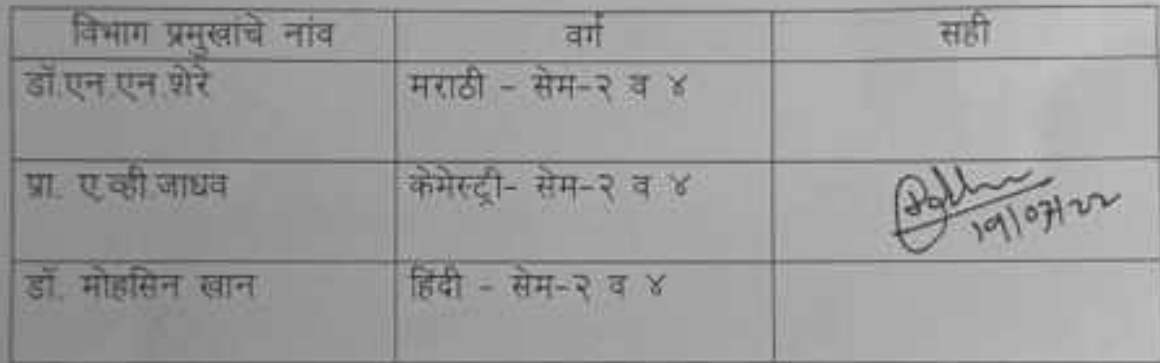 विभाग प्रमुखांचे नांव वर्ग सही
डॉ.एन.एन.शेरे मराठी - सेम-२ व ४
प्रा. ए.व्ही.जाधव केमेस्ट्री- सेम-२ व ४
19/07/22
डॉ. मोहसिन खान हिंदी - सेम-२ व ४